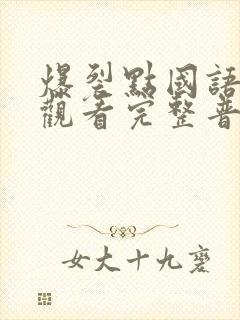 爆裂點國語
觀看完整普
女大十九變